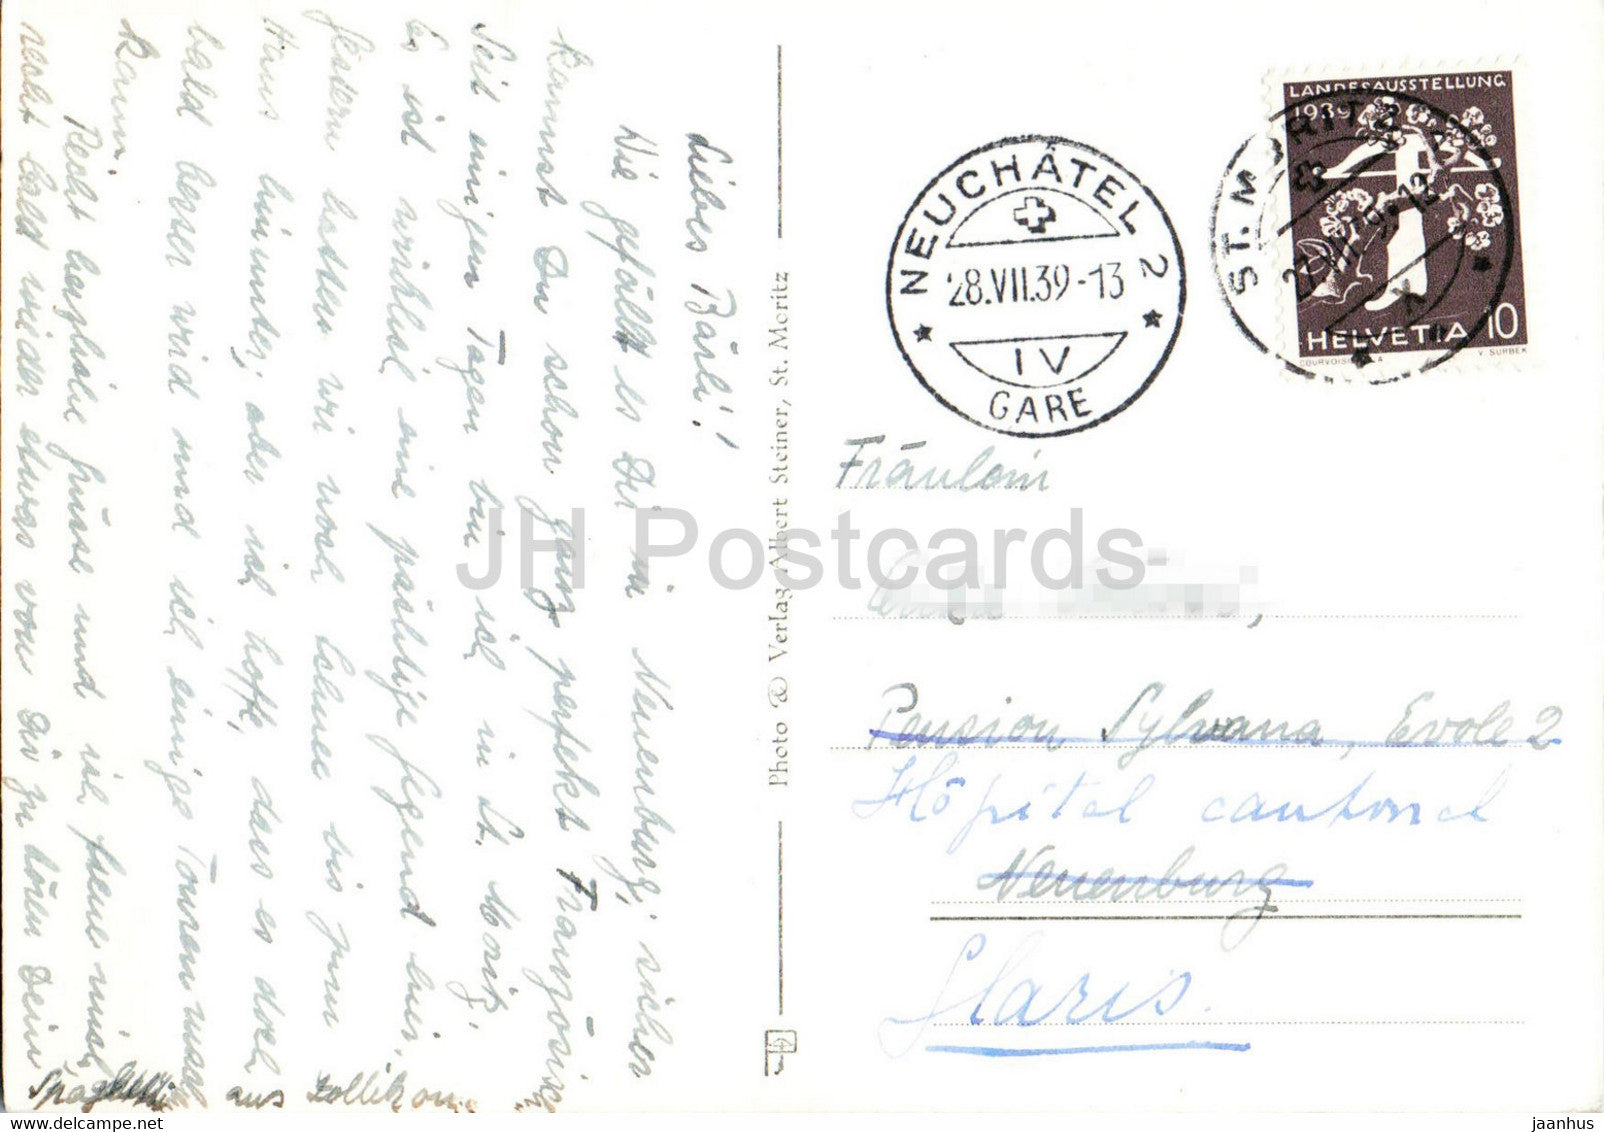 Liebes Bärli!
Wie gefällt es Dir in Neuenburg, sicher
kannst Du schon ganz perfekt Französisch
Seit einigen Tagen bin ich in St. Moritz,
es ist wirklich eine prächtige Gegend hier,
gestern hatten wir noch Schnee bis zum
Haus hinunter, aber ich hoffe, dass es doch
bald besser wird und ich einige Touren machen
kann.
Recht herzliche Grüsse und ich freue mich
recht bald wieder etwas von Dir zu hören Dein
aus Zollikon
Photo @ Verlag Albert Steiner, St. Moritz
NEUCHÂTEL 2
28.VII.39-13
IV
GARE
ST. MORITZ 2
LANDESAUSSTELLUNG
1939
HELVETIA 10
COURVOISIER S.A. V. SURBEK
Fräulein
Pension Sylvana, Evole 2
Hôpital cantonal
Neuenburg
Glaris.
JH Postcards
jaanhus www.delcampe.net